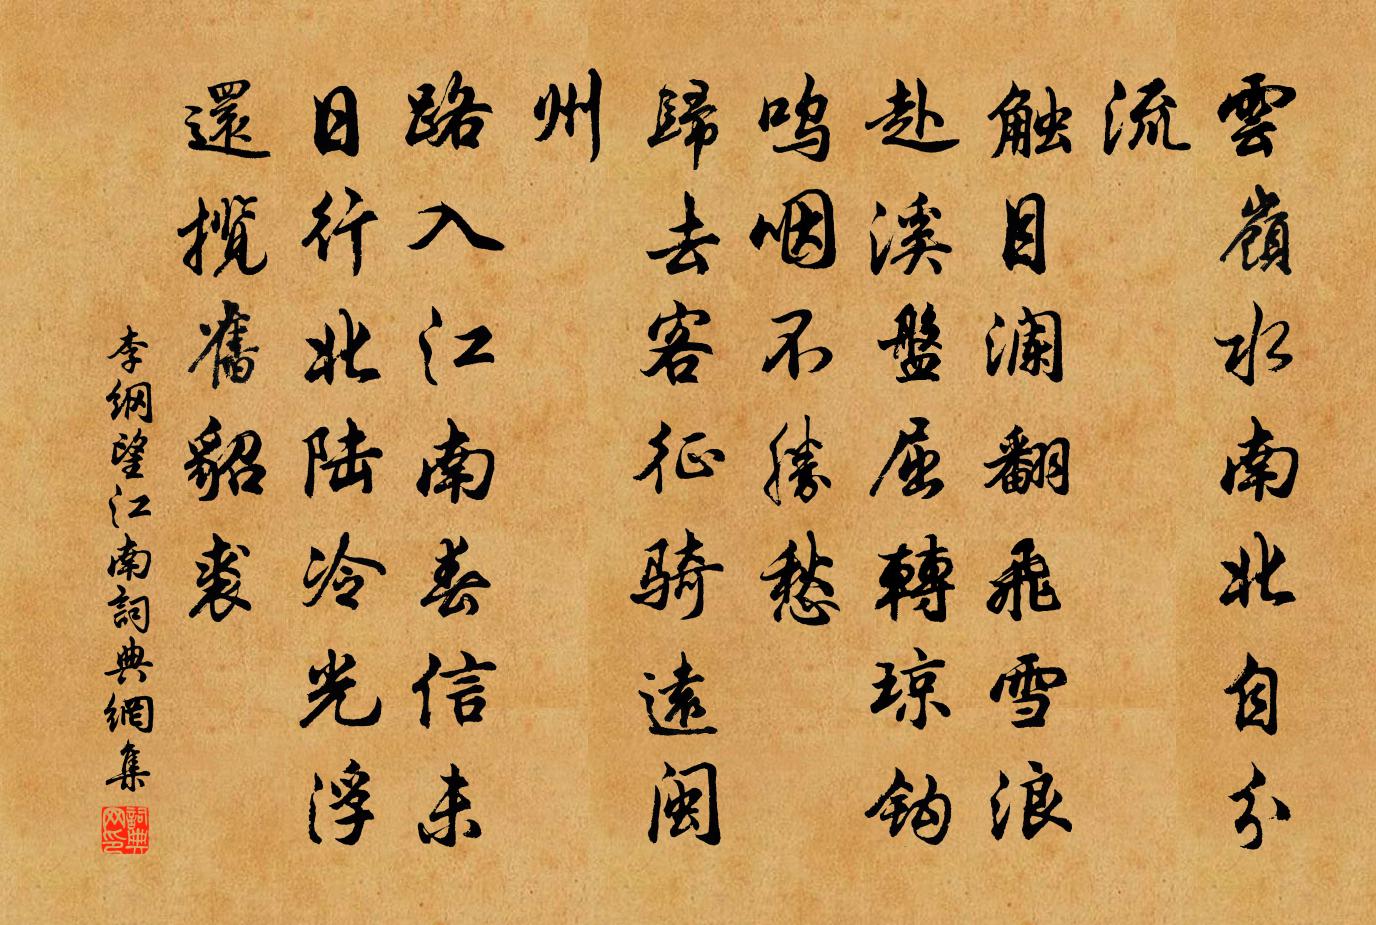 雲嶺水南北自分
流
触目瀾翻飛雪浪
赴溪盤屈轉琼鈎
鸣咽不勝愁
歸去客征骑遠闽
州
路入江南春信未
日行北陆冷光浮
還揽舊貂裘
李纲望江南詞典網集
詞典网印